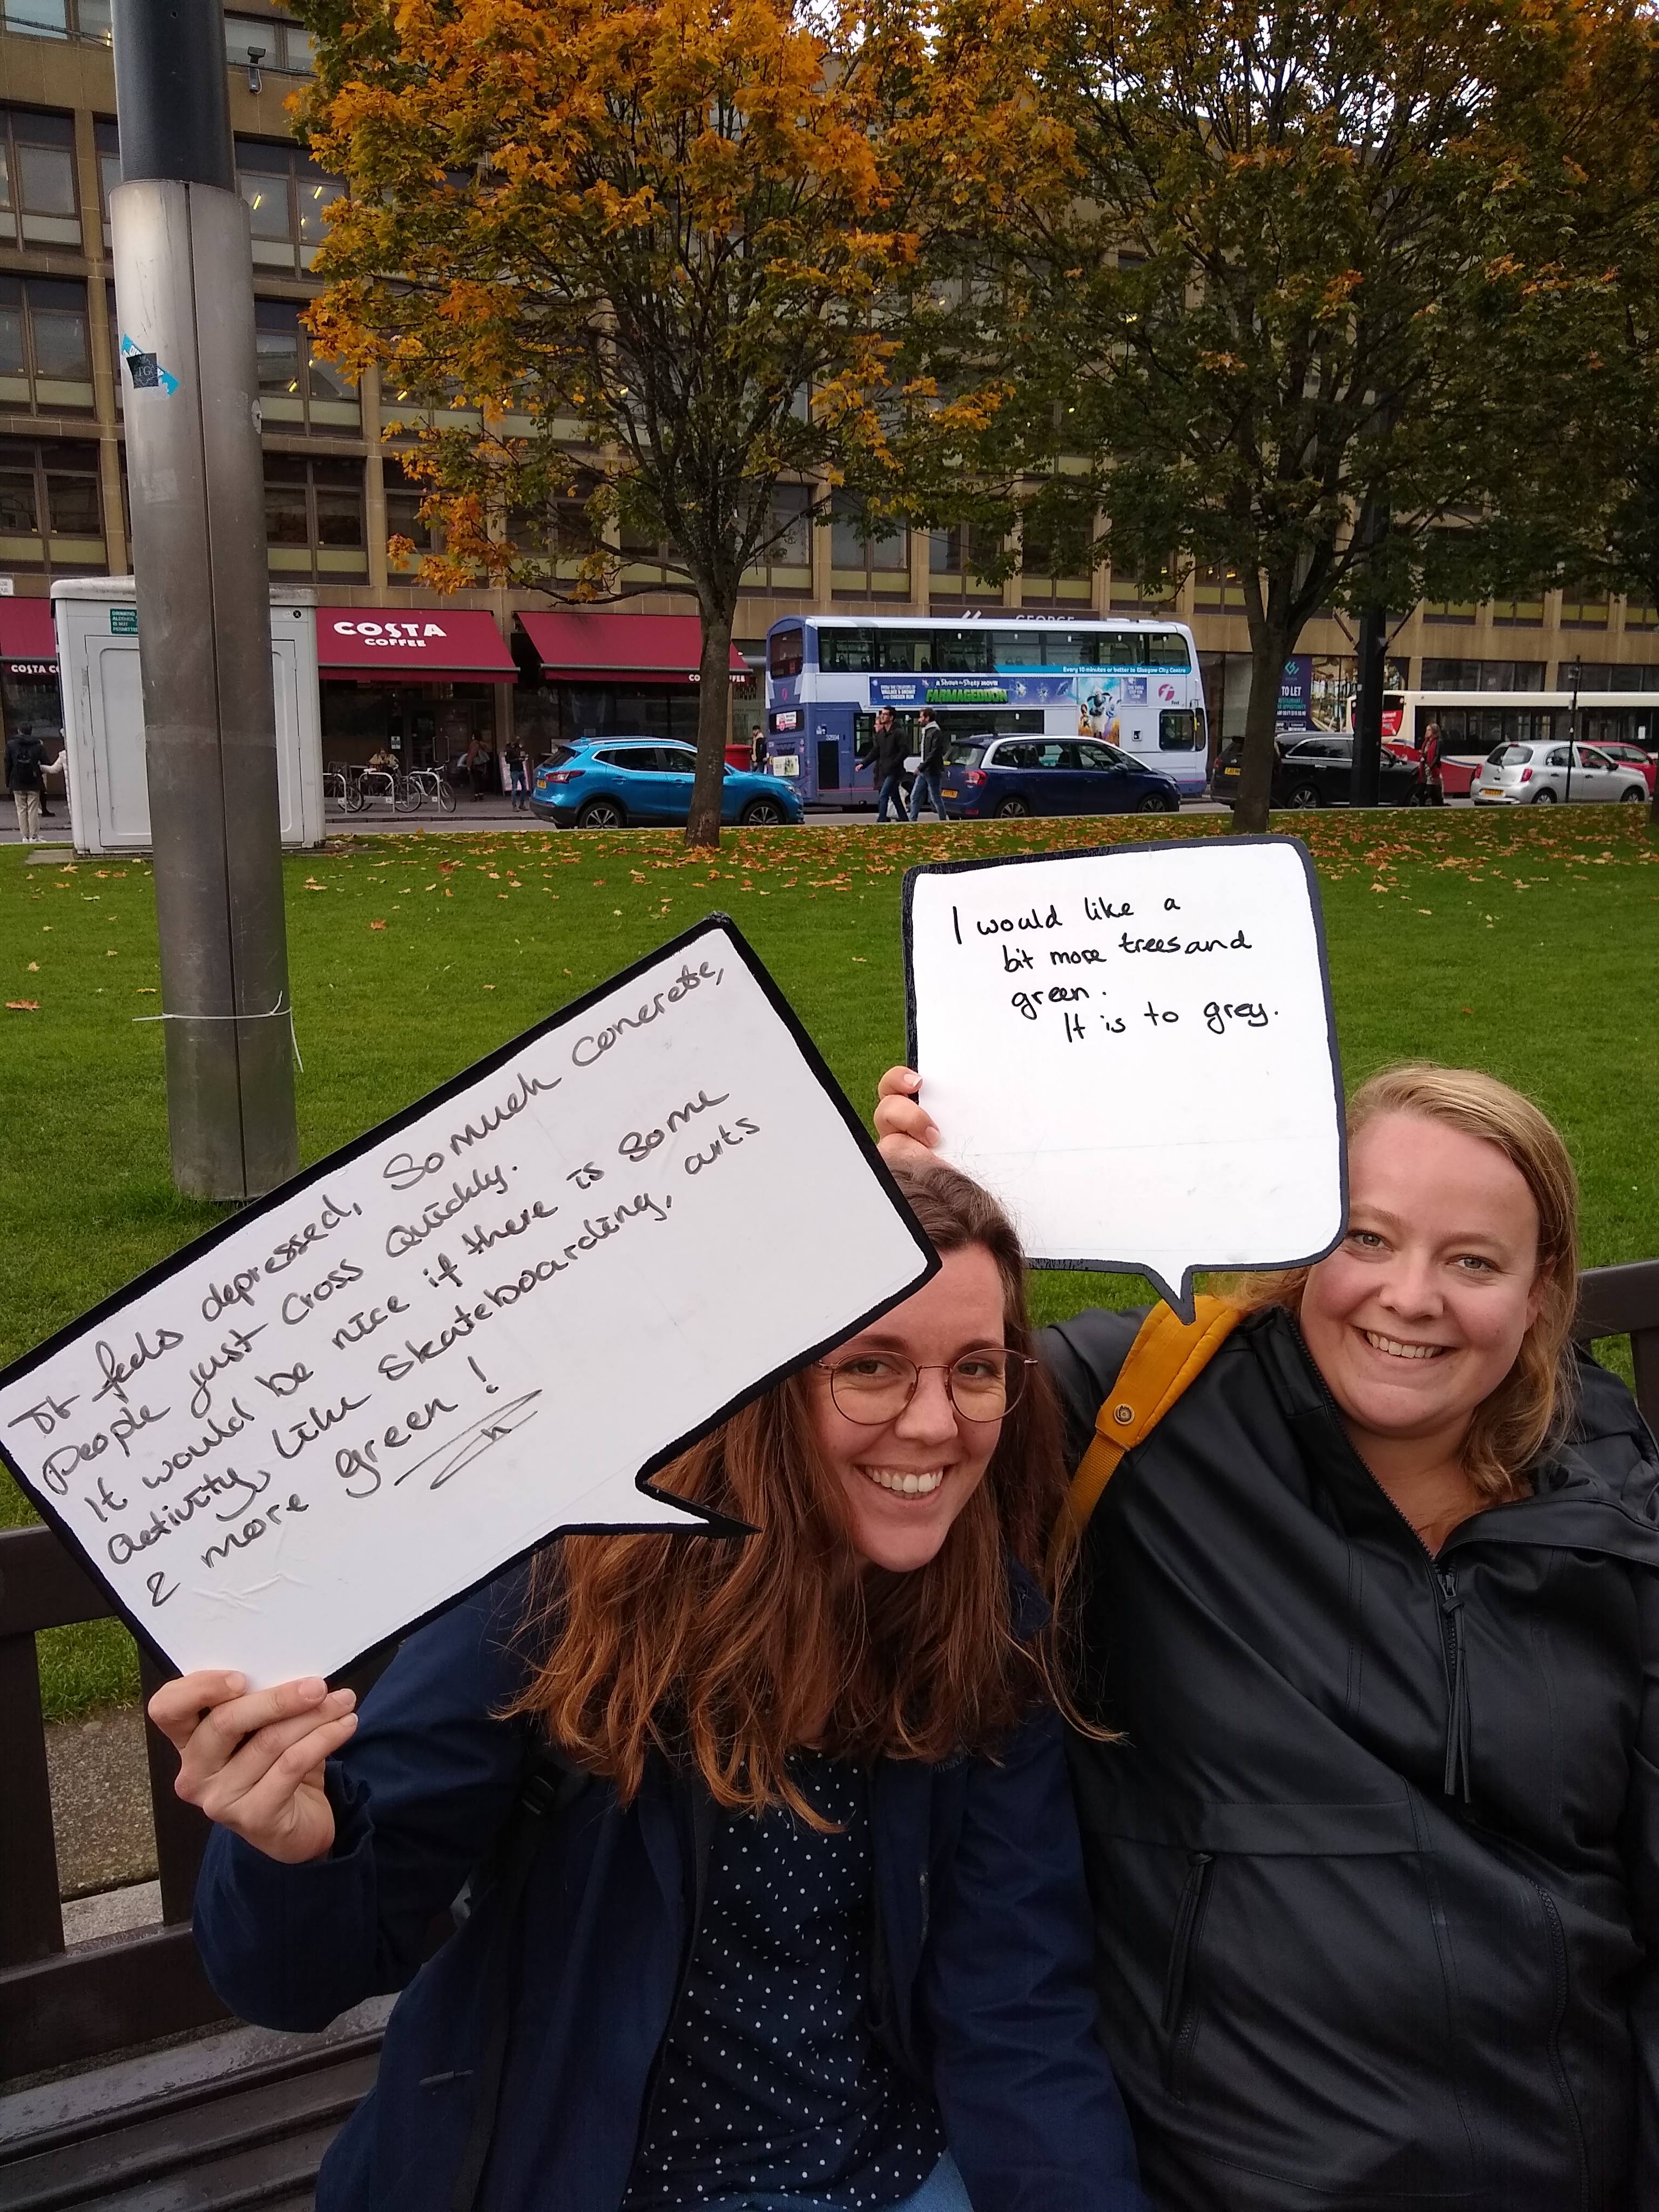 COSTA
COFFEE
COSTA CO
GEORGE
Every 10 minutes or better to Glasgow City Centre
A Shaun the Sheep MOVIE
FARMAGEDDON
First
TO LET
I would like a
bit more trees and
green.
It is to grey.
It feels depressed, So much concrete,
People just cross Quickly.
It would be nice if there is some
activity, like skateboarding, arts
& more green!